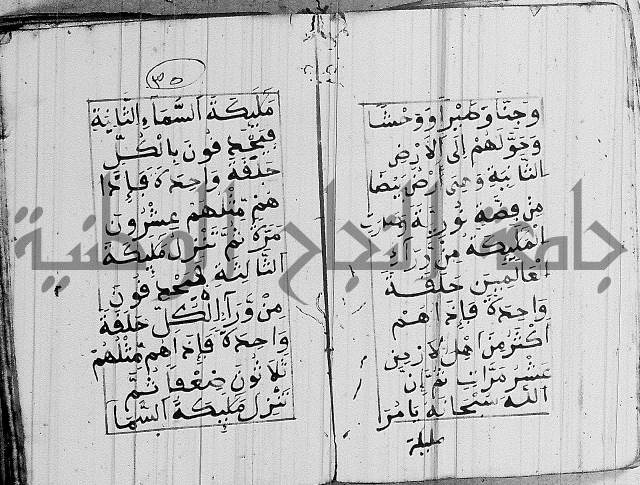 وجنا وطيرا ووحشا
وحولهم إلى الأرض
الثانية وهي أرض بيضا
من فضة نورية
الملائكة من وراء
العالمين حلقة
واحدة فإذا هم
أكثر من أهل الأرضين
عشر مرات ثم إن
الله سبحانه يأمر
مليكة
٣٥
مليكة السماء الثانية
فيحدفون بالكل
حلقة واحدة فإذا
هم مثلهم عشرون
مرة ثم تنزل مليكة
الثالثة فيحدفون
من وراء الكل حلقة
واحدة فإذا هم مثلهم
ثلاثون ضعفا ثم
تنزل مليكة السما
جامعة النجاح الوطنية